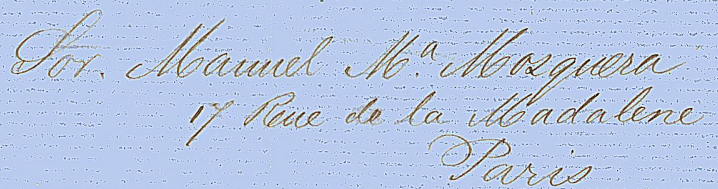 Sor. Manuel Ma. Mosquera
17 Rue de la Madalene
Paris